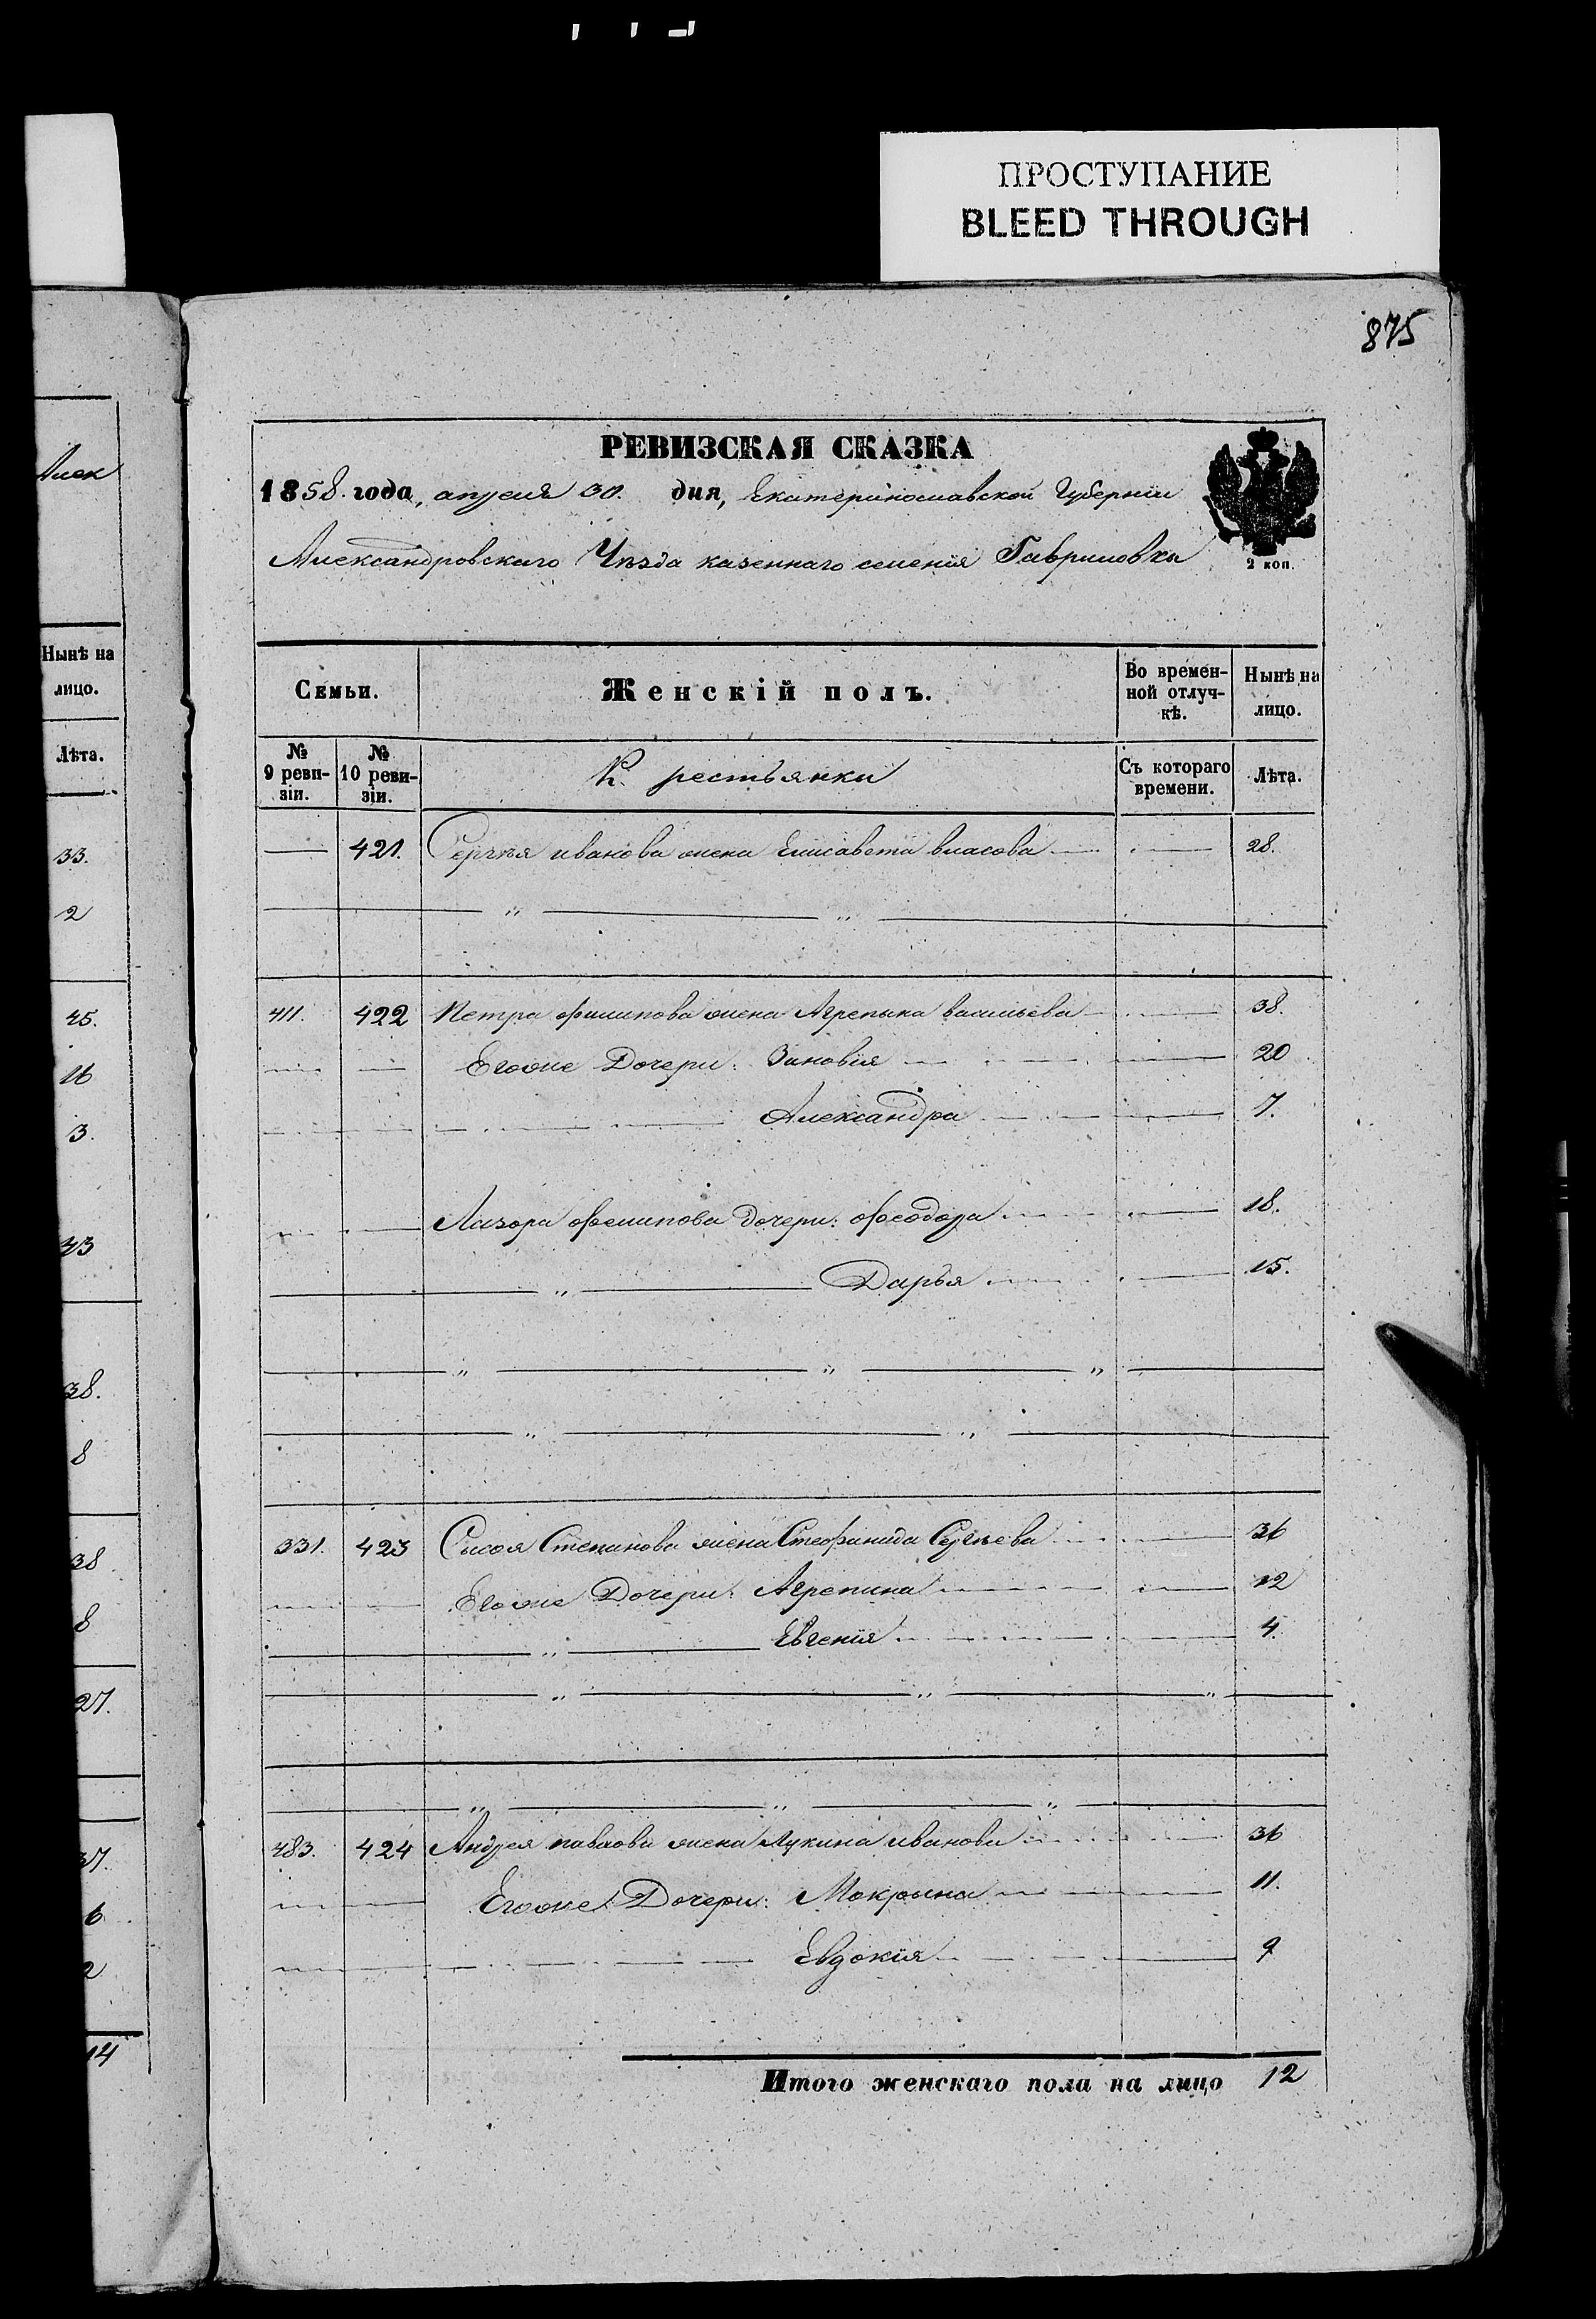 ПРОСТУПАНИЕ
BLEED THROUGH
875
РЕВИЗСКАЯ СКАЗКА
1858. года, апреля 30. дня, Екатеринославской Губернии
Александровскаго Уезда казеннаго селения Гавриловки
2 коп.
Семьи. Женскій полъ. Во времен-ной отлуч-кѣ. Нынѣ на лицо.
№ 9 реви-зіи. № 10 реви-зіи. Крестьянки Съ котораго времени. Лѣта.
421. Сергѣя иванова жена Елисавета власова 28.
411. 422 Петра филипова жена Агрепына васильева 38.
Егоже Дочери: Зиновія 20
Александра 7.
Лазора филипова Дочери: Феодора 18.
Дарья 15.
331. 423 Сысоя Степанова жена Стефанида Сергѣева 36
Егоже Дочери: Агрепина 12
Евгенія 4.
483. 424 Андрея павлова жена Лукина иванова 36
Егоже Дочери: Мокрына 11.
Евдокія 9
Итого женскаго пола на лицо 12
Алек
Нынѣ на
лицо.
Лѣта.
33.
2
45.
16
3.
43
38.
8
38
8
27.
37.
6
2
14